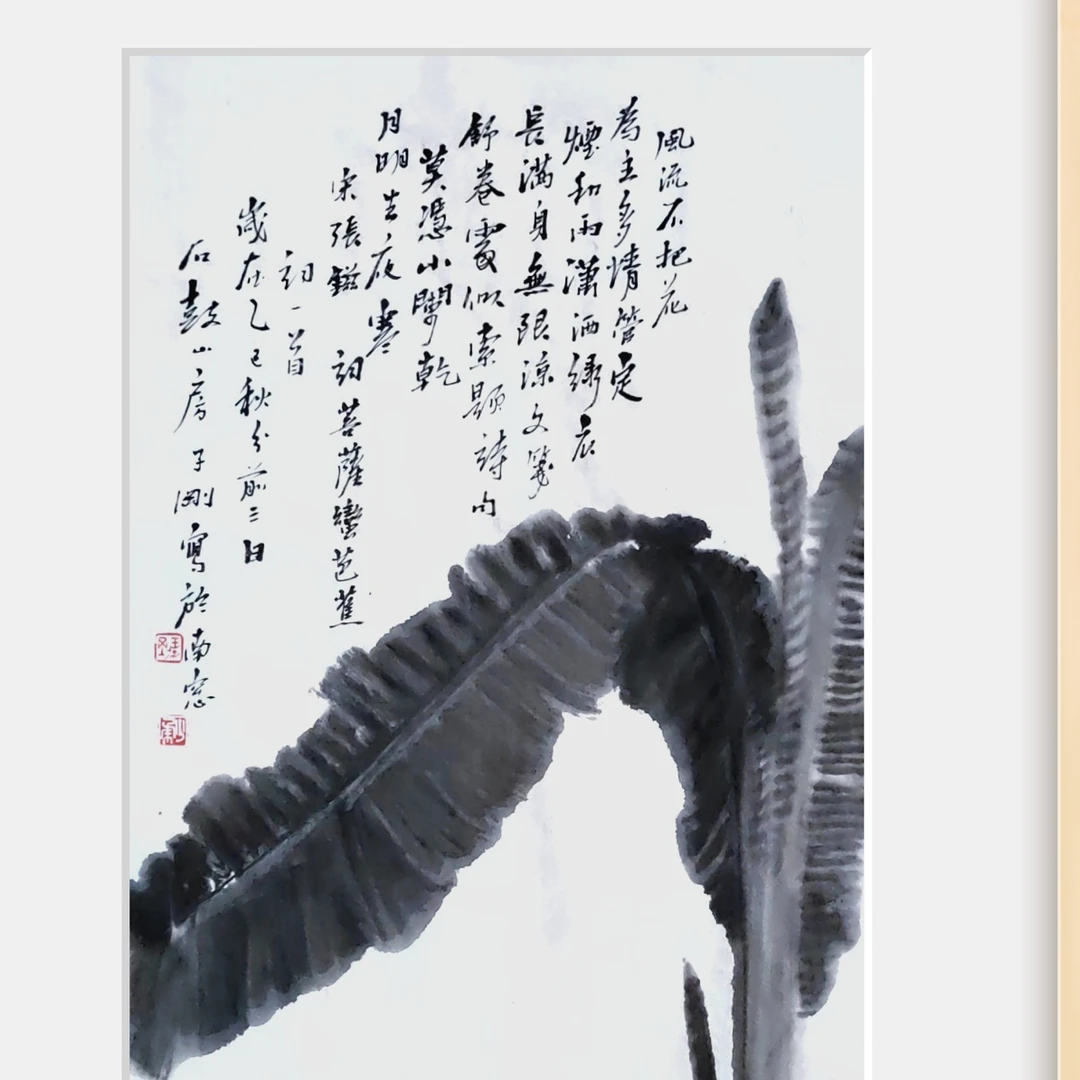 風流不把花
為主多情管定
煙和雨瀟洒綠衣
長滿身無限涼文箋
舒卷處似索題詩句
莫憑小闌乾
月明生夜寒
宋張鎡詞菩薩蠻芭蕉
詞一首
歲在乙巳秋分前三日
石鼓山房子剛寫於南窓